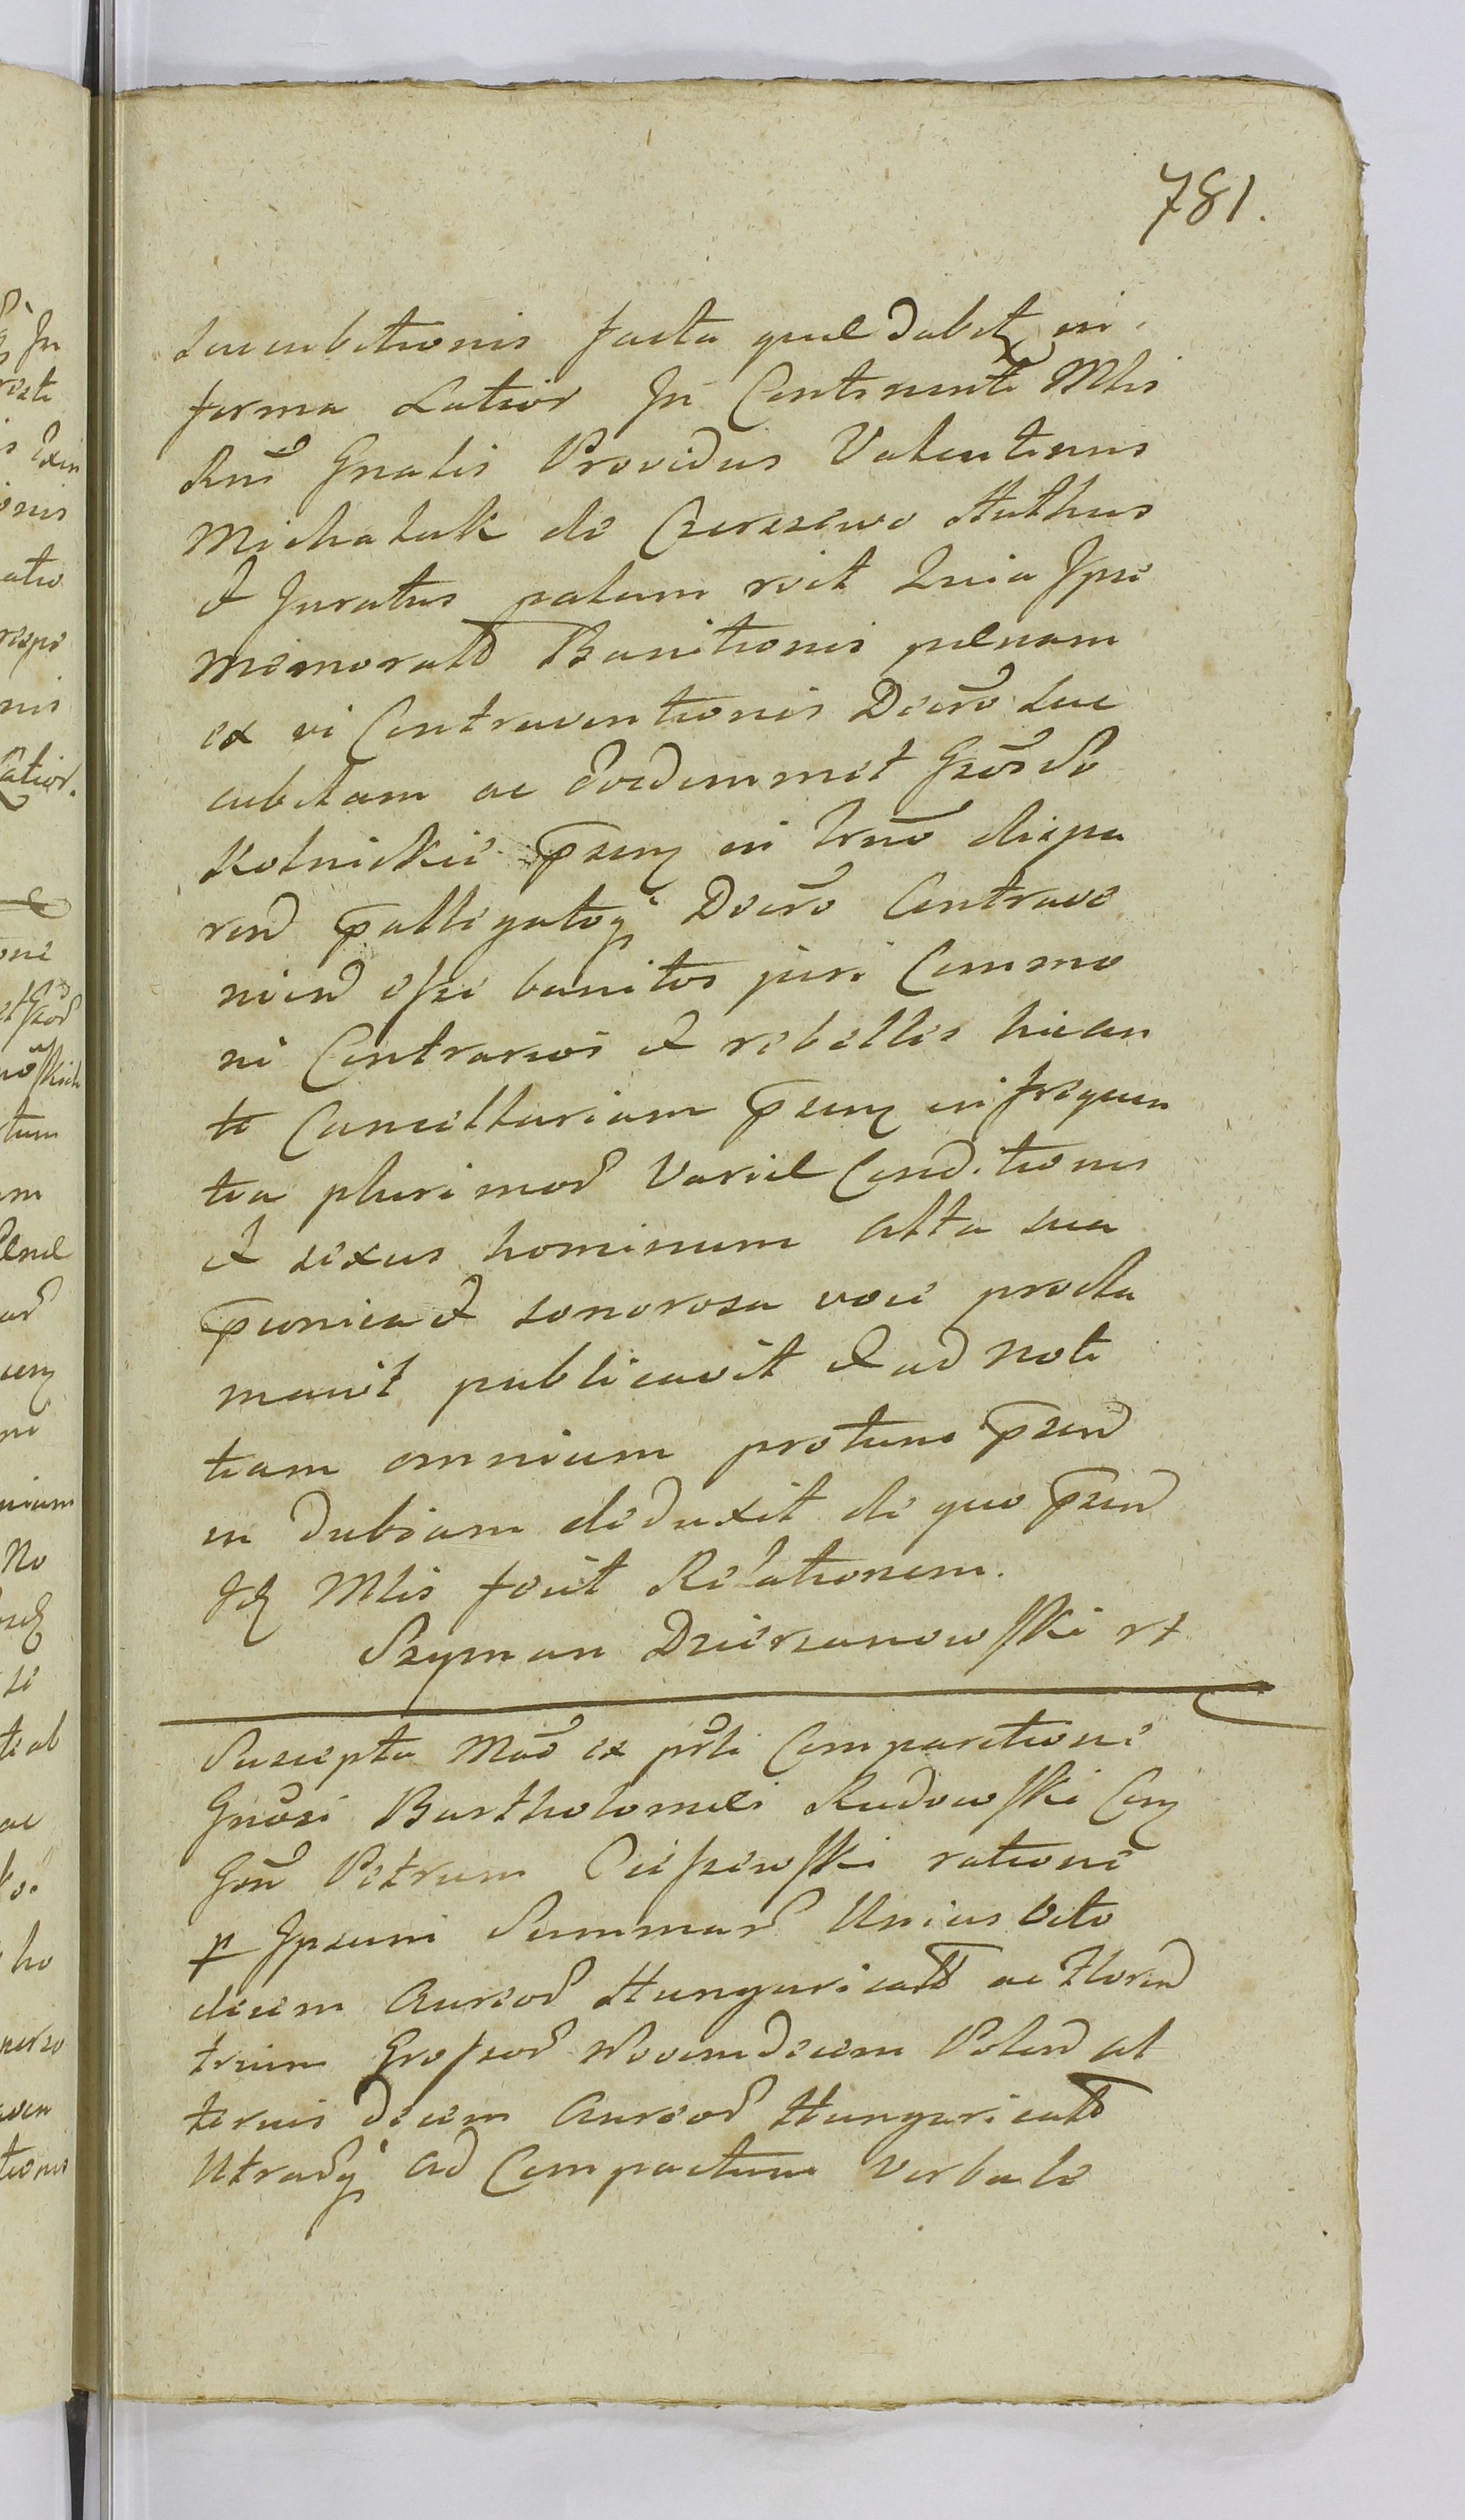 781.
Succubitionis facta quae dabit in
forma Latior In Continenti Mlis
Rni Gnalis Providus Valentinus
Michaluk de Czerszewo Authus
et Juratus palam recit Quia Ipse
memorata Banitionis paenam
ex vi Contraventionis Decro suc
cubitam ac Eosdemmet Gnosos
Kolnickie psenz in Trmo dispa
rend palligatoq Decro Contrave
niend esse banitos juri Commo
ni Contrarios et rebelles hic an
te Cancellariam psenz in frequen
tia plurimor Variae Conditionis
et sexus hominum alta sua
pconica et sonorosa voce procla
mavit publicavit et ad noti
tiam omnium protunc psend
in dubiam deduxit de quo psend
Id Mlis fecit Relationem.
Szyman Dzierzanowski
Suscepta Mao ex prli Comparitione
Gnosi Bartholomaei Rudowski Conz
Gnm Petrum Cieszewski ratione
p Ipsum Summar Unius Octo
decim Aureor Hungaricalt ac Floren
trium Grossor Novemdecem Polon al
terius decem Aureor Hungaricalt
Utraq ad Compactum Verbale